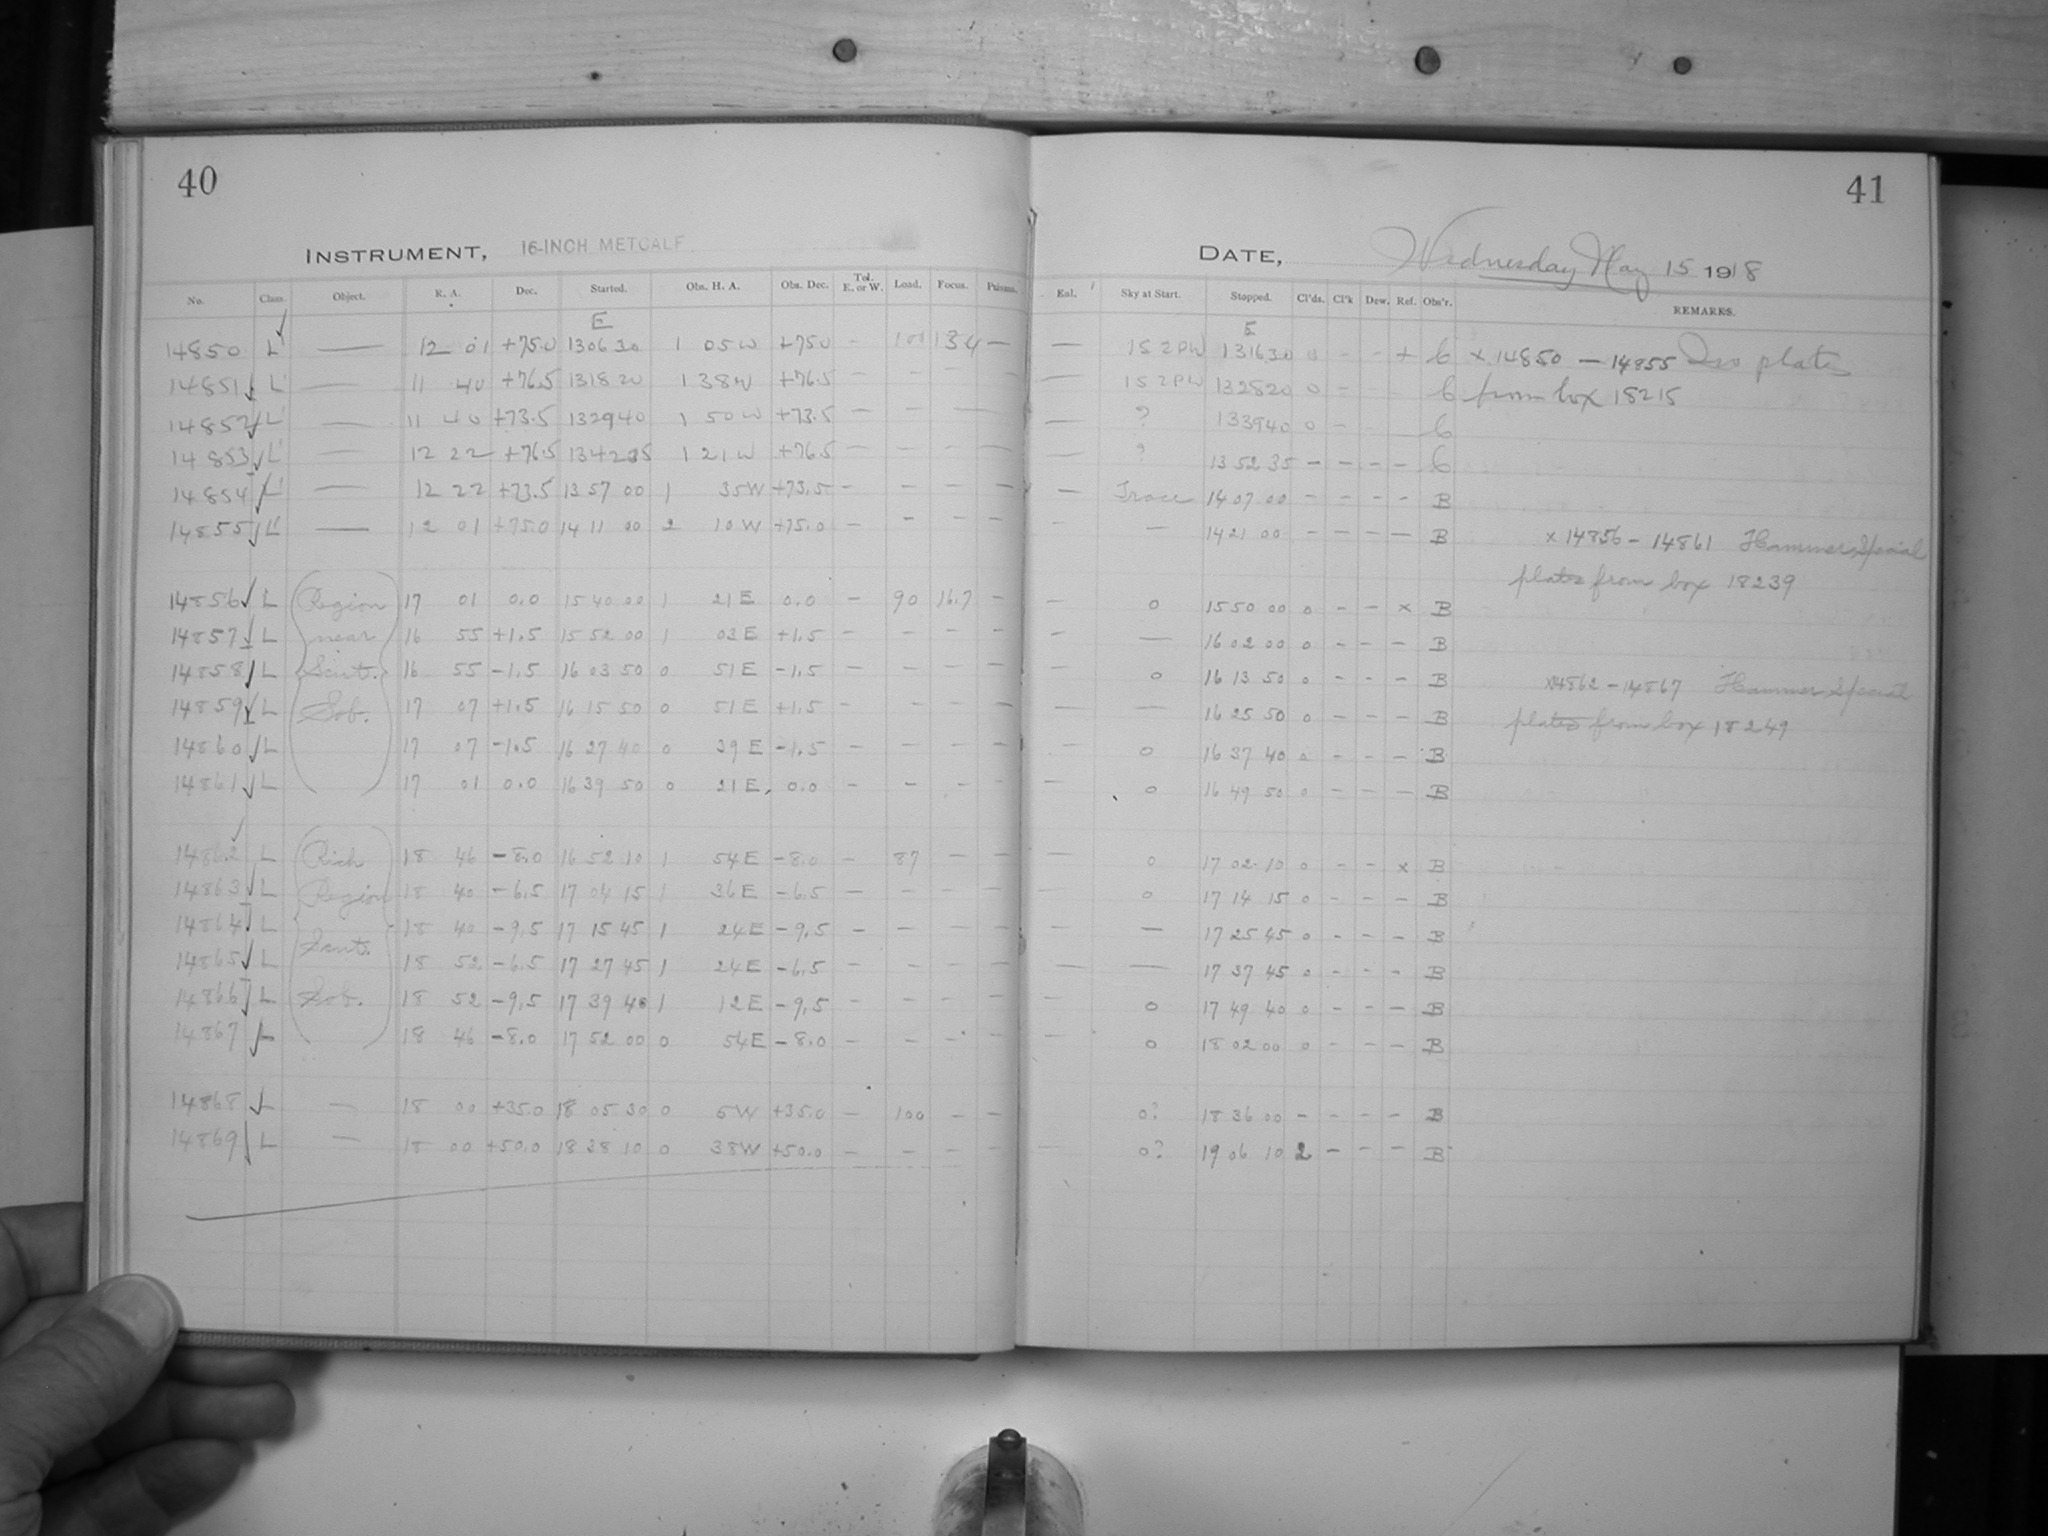 40
INSTRUMENT, 16-INCH METCALF
No. Class. Object. R. A. Dec. Started. Obs. H. A. Obs. Dec. Tel. E. or W. Load. Focus.
E
14850 L — 12 01 +75.0 13 06 30 1 05 W +75.0 - 100 13.4 —
14851 L — 11 40 +76.5 13 18 20 1 38 W +76.5 - - - -
14852 L — 11 40 +73.5 13 29 40 1 50 W +73.5 - - - —
14853 L — 12 22 +76.5 13 42 35 1 21 W +76.5 - - - —
14854 L — 12 22 +73.5 13 57 00 1 35 W +73.5 - - - -
14855 L — 12 01 +75.0 14 11 00 2 10 W +75.0 - - - -
14856 L Region 17 01 0.0 15 40 00 1 21 E 0.0 - 90 16.7 -
14857 L near 16 55 +1.5 15 52 00 1 03 E +1.5 - - - -
14858 L Scut. 16 55 -1.5 16 03 50 0 51 E -1.5 - - - -
14859 L Sob. 17 07 +1.5 16 15 50 0 51 E +1.5 - - - -
14860 L 17 07 -1.5 16 27 40 0 39 E -1.5 - - - -
14861 L 17 01 0.0 16 39 50 0 21 E 0.0 - - -
14862 L Rich 18 46 -8.0 16 52 10 1 54 E -8.0 - 87 - -
14863 L Region 18 40 -6.5 17 04 15 1 36 E -6.5 - - - -
14864 L 18 40 -9.5 17 15 45 1 24 E -9.5 - - - -
14865 L Scut. 18 52 -6.5 17 27 45 1 24 E -6.5 - - - -
14866 L Sob. 18 52 -9.5 17 39 40 1 12 E -9.5 - - - -
14867 L 18 46 -8.0 17 52 00 0 54 E -8.0 - - - -
14868 L — 18 00 +35.0 18 05 30 0 5 W +35.0 - 100 - -
14869 L — 18 00 +50.0 18 38 10 0 38 W +50.0 - - - -
41
DATE, Wednesday May 15 1918
Sky at Start. Stopped. Cl'ds. Cl'k Dew. Ref. Obs'r. REMARKS.
— 1S 2PW 13 16 30 0 - - + C x 14850 — 14855 Iso plates
— 1S 2PW 13 28 20 0 - C from box 18215
— ? 13 39 40 0 - C
— ? 13 52 35 - - - - C
— Trace 14 07 00 - - - - B
- — 14 21 00 - - - - B x 14856 - 14861 Hammer Special
plates from box 18239
— 0 15 50 00 0 - - x B
- — 16 02 00 0 - - - B
- 0 16 13 50 0 - - - B x14862 - 14867 Hammer Special
— — 16 25 50 0 - - - B plates from box 18249
— 0 16 37 40 0 - - - B
— 0 16 49 50 0 - - - B
— 0 17 02 10 0 - - x B
- 0 17 14 15 0 - - - B
- — 17 25 45 0 - - - B
— — 17 37 45 0 - - - B
- 0 17 49 40 0 - - - B
- 0 18 02 00 0 - - - B
0? 18 36 00 - - - - B
0? 19 06 10 2 - - - B